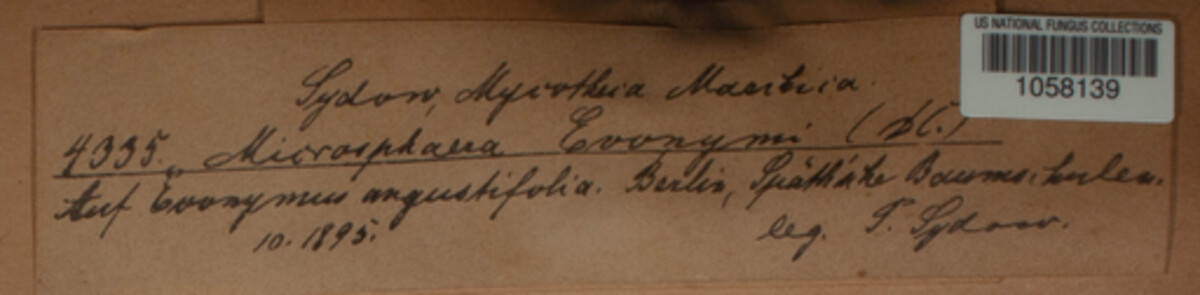 US NATIONAL FUNGUS COLLECTIONS
1058139
Sydow, Mycotheca Marchica.
4335. Microsphaera Evonymi (DC.)
Auf Evonymus angustifolia. Berlin, Späth'sche Baumschulen.
10. 1895.
leg. P. Sydow.